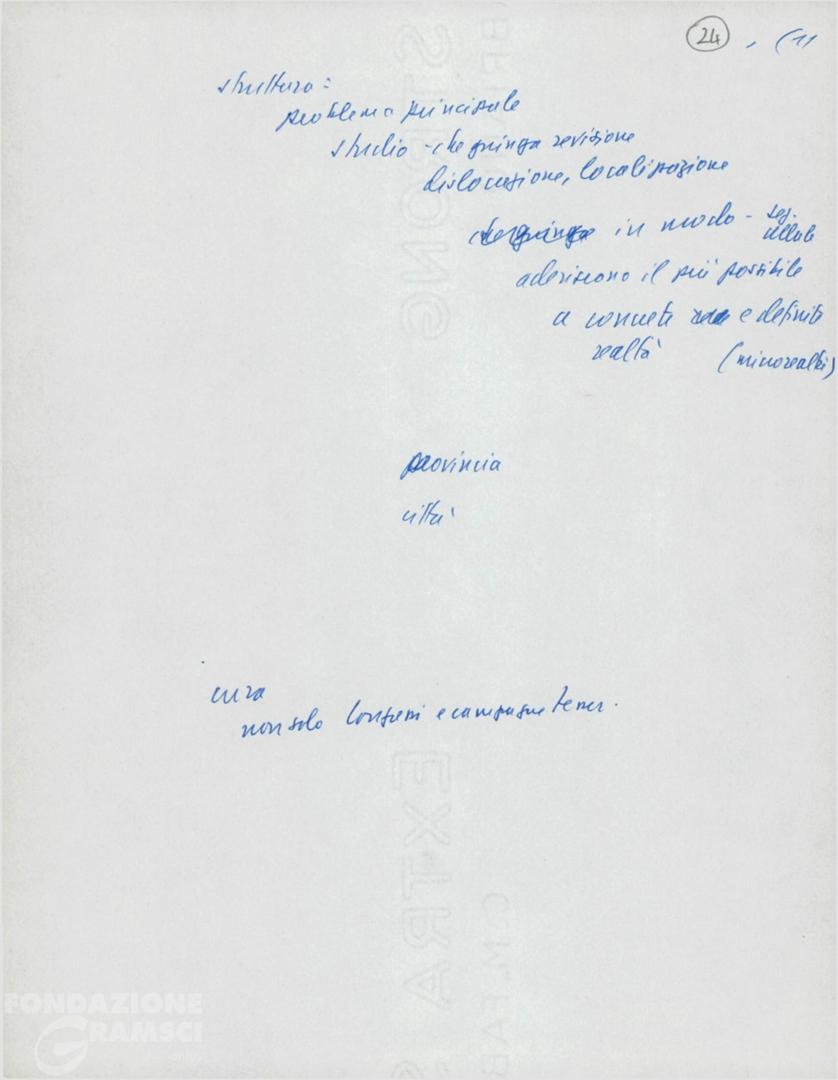 24, (1)
struttura:
problema principale
studio - che giunga revisione
dislocazione, localizzazione
che giunga in modo - sez.
cellule
aderiscano il più possibile
a concrete e definite
realtà (microrealtà)
provincia
città
cura
non solo Congressi e campagne tesser.
STRONG
EXTRA
FONDAZIONE
GRAMSCI